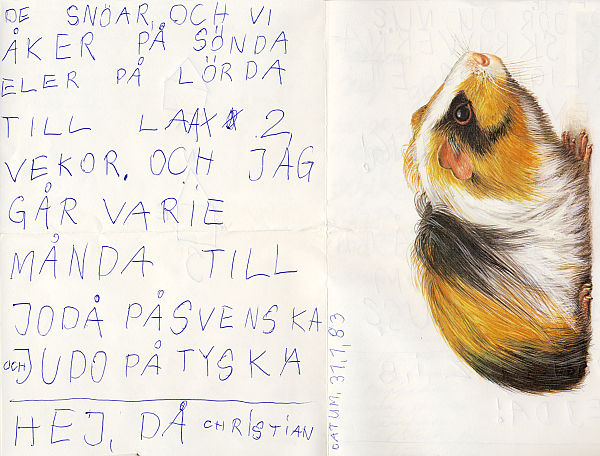 DE SNÖAR, OCH VI
ÅKER PÅ SÖNDA
ELER PÅ LÖRDA
TILL LAAX 2
VEKOR. OCH JAG
GÅR VARIE
MÅNDA TILL
JODÅ PÅ SVENSKA
OCH JUDO PÅ TYSKA
HEJ, DÅ CHRISTIAN
DATUM, 31,1,83